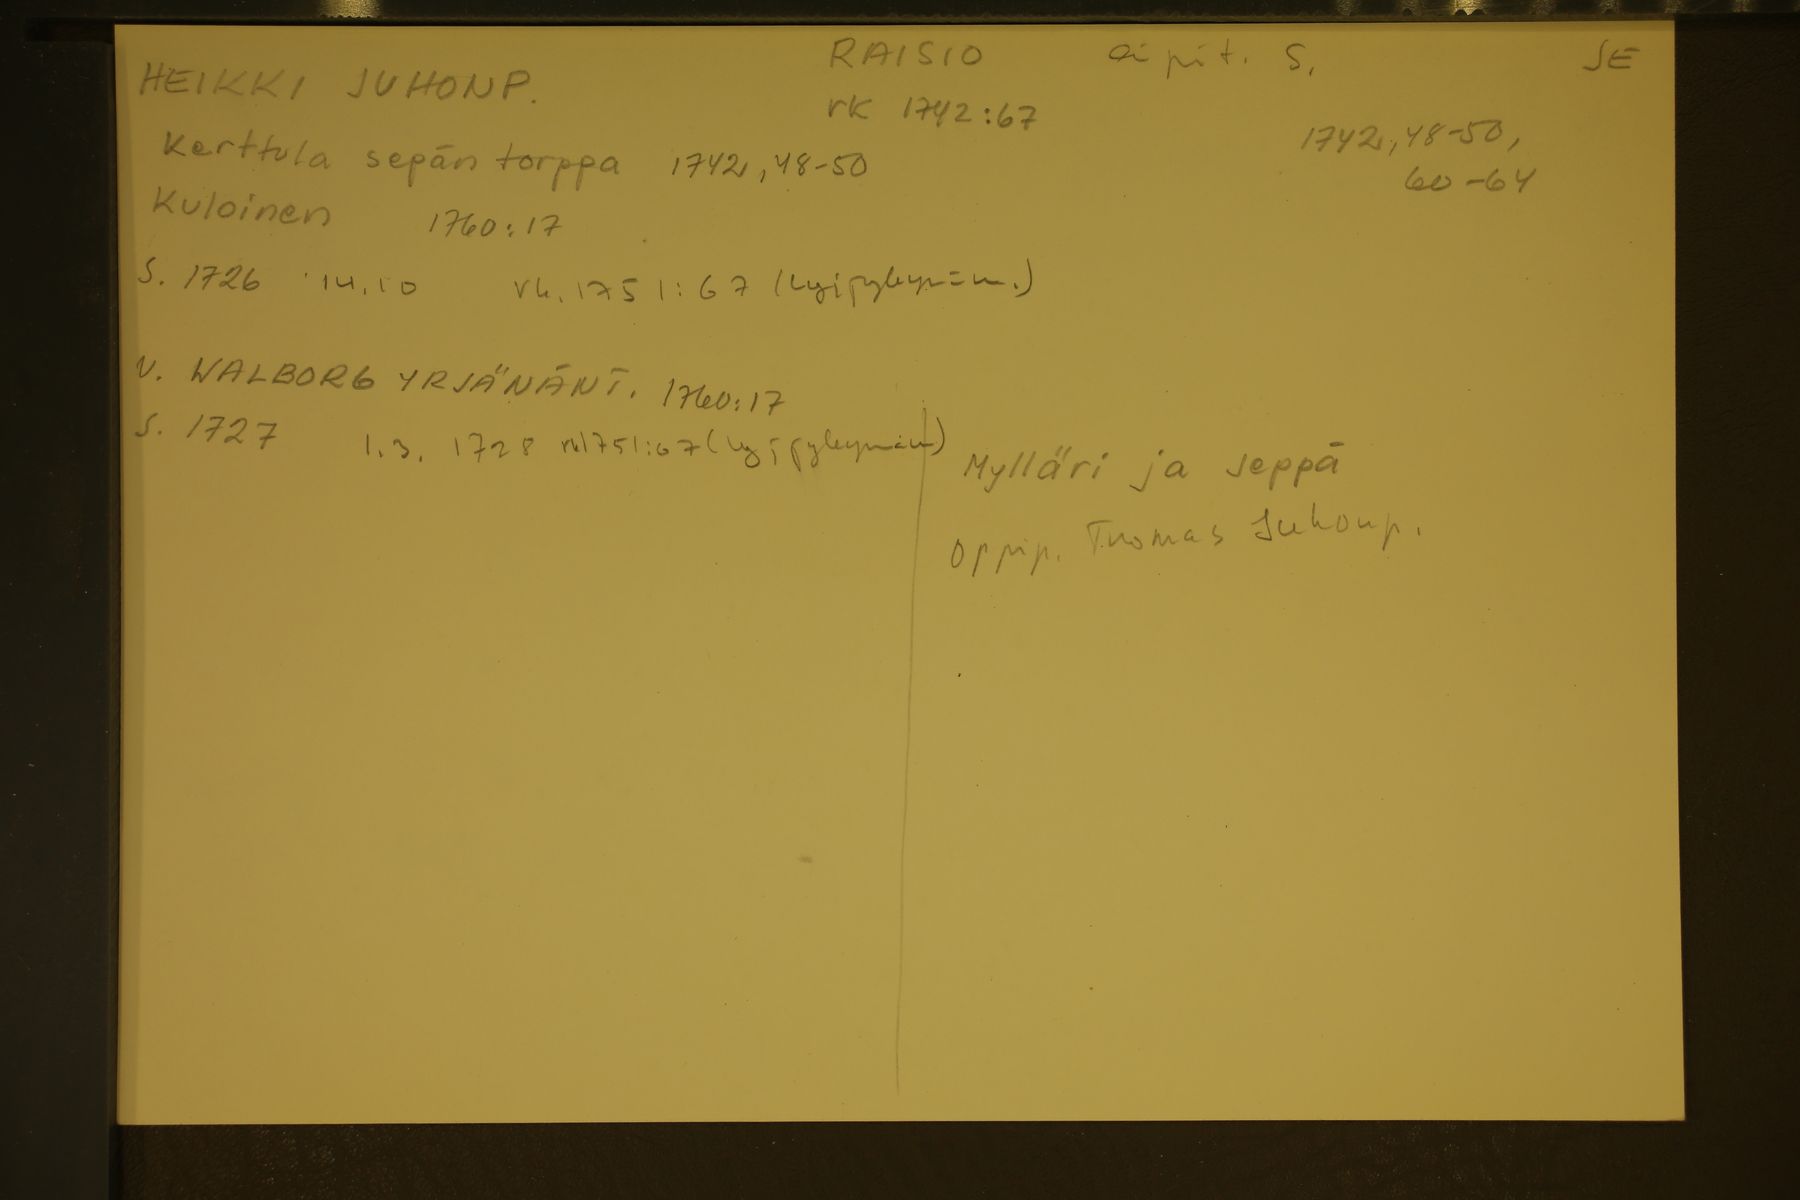 HEIKKI JUHONP.
RAISIO ei pit. S. SE
rk 1742:67
1742, 48-50,
60-64
Kerttula sepän torppa 1742, 48-50
Kuloinen 1760:17
S. 1726 14.10 rk. 1751:67 (lyijykynäm.)
V. WALBORG YRJÄNÄNT. 1760:17
S. 1727 1.3. 1728 rk 1751:67 (lyijykynäm)
Mylläri ja seppä
Oppip. Tuomas Juhonp.